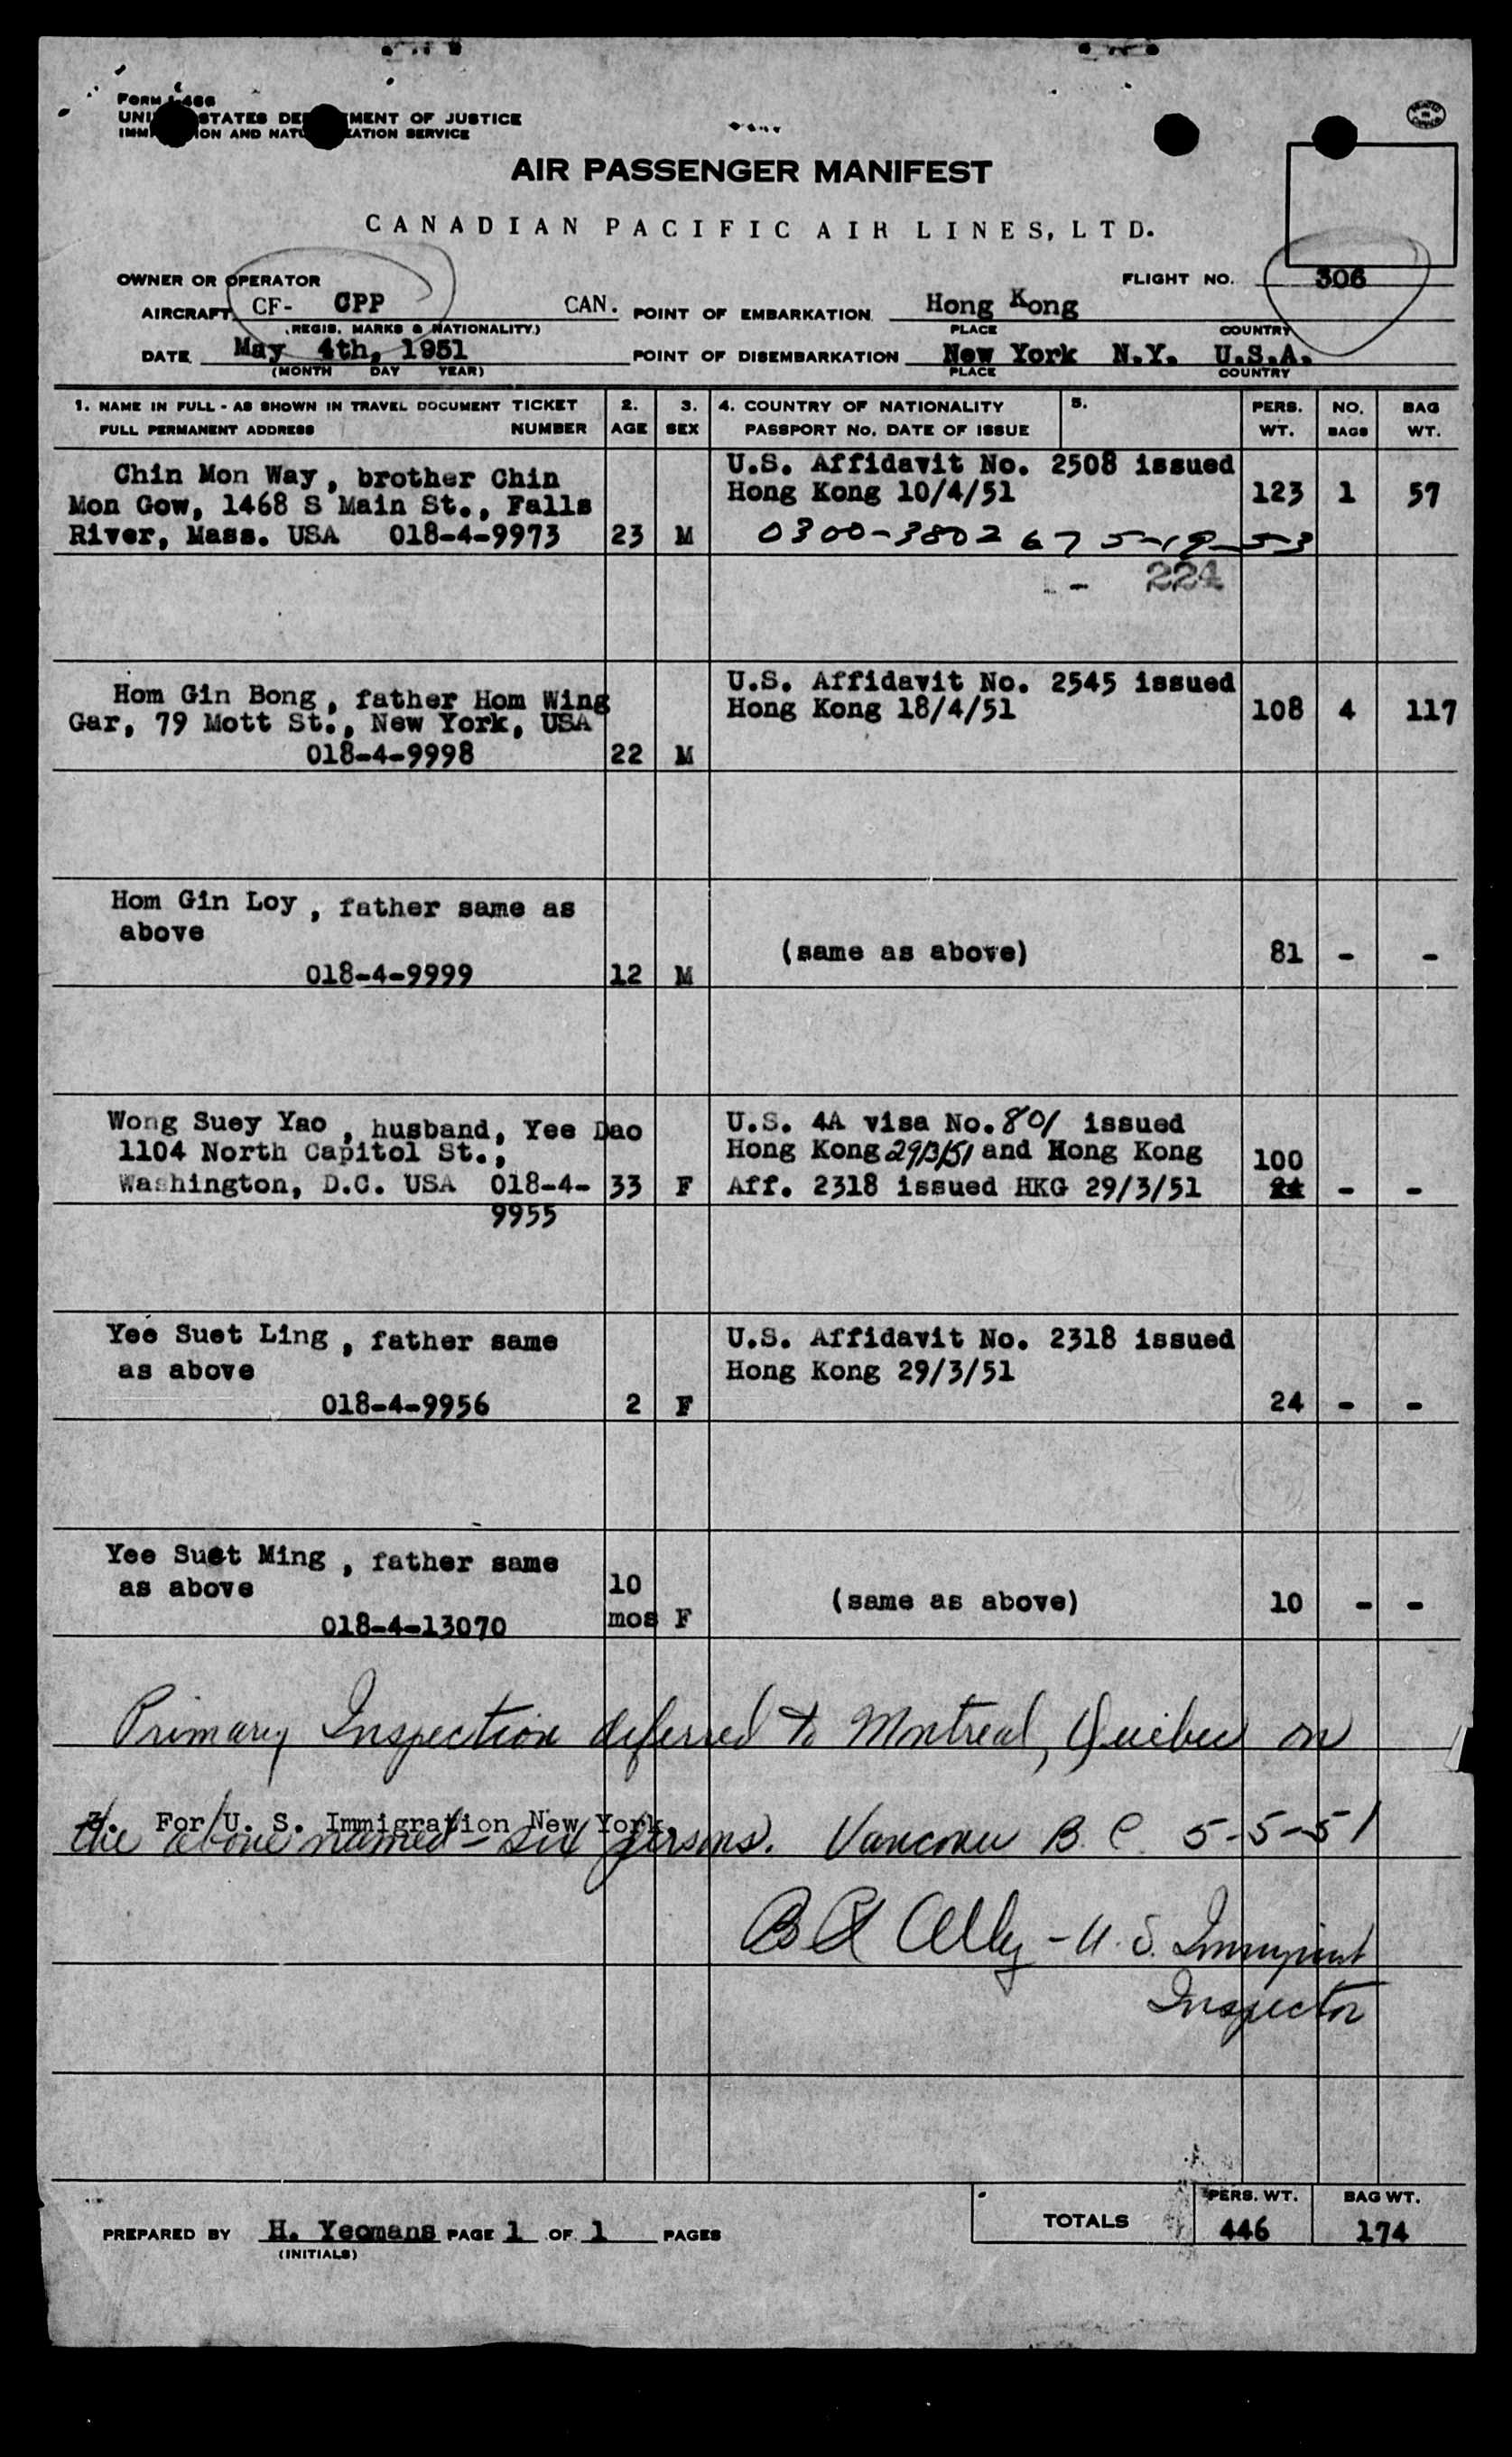 FORM I-466
UNITED STATES DEPARTMENT OF JUSTICE
IMMIGRATION AND NATURALIZATION SERVICE
AIR PASSENGER MANIFEST
CANADIAN PACIFIC AIR LINES, LTD.
OWNER OR OPERATOR FLIGHT NO. 306
AIRCRAFT CF- CPP CAN. POINT OF EMBARKATION Hong Kong
(REGIS. MARKS & NATIONALITY) PLACE COUNTRY
DATE May 4th, 1951 POINT OF DISEMBARKATION New York N.Y. U.S.A.
(MONTH DAY YEAR) PLACE COUNTRY
1. NAME IN FULL - AS SHOWN IN TRAVEL DOCUMENT TICKET 2. 3. 4. COUNTRY OF NATIONALITY 5. PERS. NO. BAG
FULL PERMANENT ADDRESS NUMBER AGE SEX PASSPORT No. DATE OF ISSUE WT. BAGS WT.
Chin Mon Way, brother Chin U.S. Affidavit No. 2508 issued
Mon Gow, 1468 S Main St., Falls Hong Kong 10/4/51 123 1 57
River, Mass. USA 018-4-9973 23 M 0300-3802 67 5-19-53
224
Hom Gin Bong, father Hom Wing U.S. Affidavit No. 2545 issued
Gar, 79 Mott St., New York, USA Hong Kong 18/4/51 108 4 117
018-4-9998 22 M
Hom Gin Loy, father same as
above (same as above) 81 - -
018-4-9999 12 M
Wong Suey Yao, husband, Yee Dao U.S. 4A visa No. 801 issued
1104 North Capitol St., Hong Kong 29/3/51 and Hong Kong 100
Washington, D.C. USA 018-4- 33 F Aff. 2318 issued HKG 29/3/51 24 - -
9955
Yee Suet Ling, father same U.S. Affidavit No. 2318 issued
as above Hong Kong 29/3/51
018-4-9956 2 F 24 - -
Yee Suet Ming, father same
as above 10 (same as above) 10 - -
018-4-13070 mos F
Primary Inspection deferred to Montreal, Quebec on
3. For U. S. Immigration New York.
the above named - six persons. Vancouver B.C. 5-5-51
U.S. Immigrant
Inspector
TOTALS PERS. WT. BAG WT.
PREPARED BY H. Yeomans PAGE 1 OF 1 PAGES 446 174
(INITIALS)